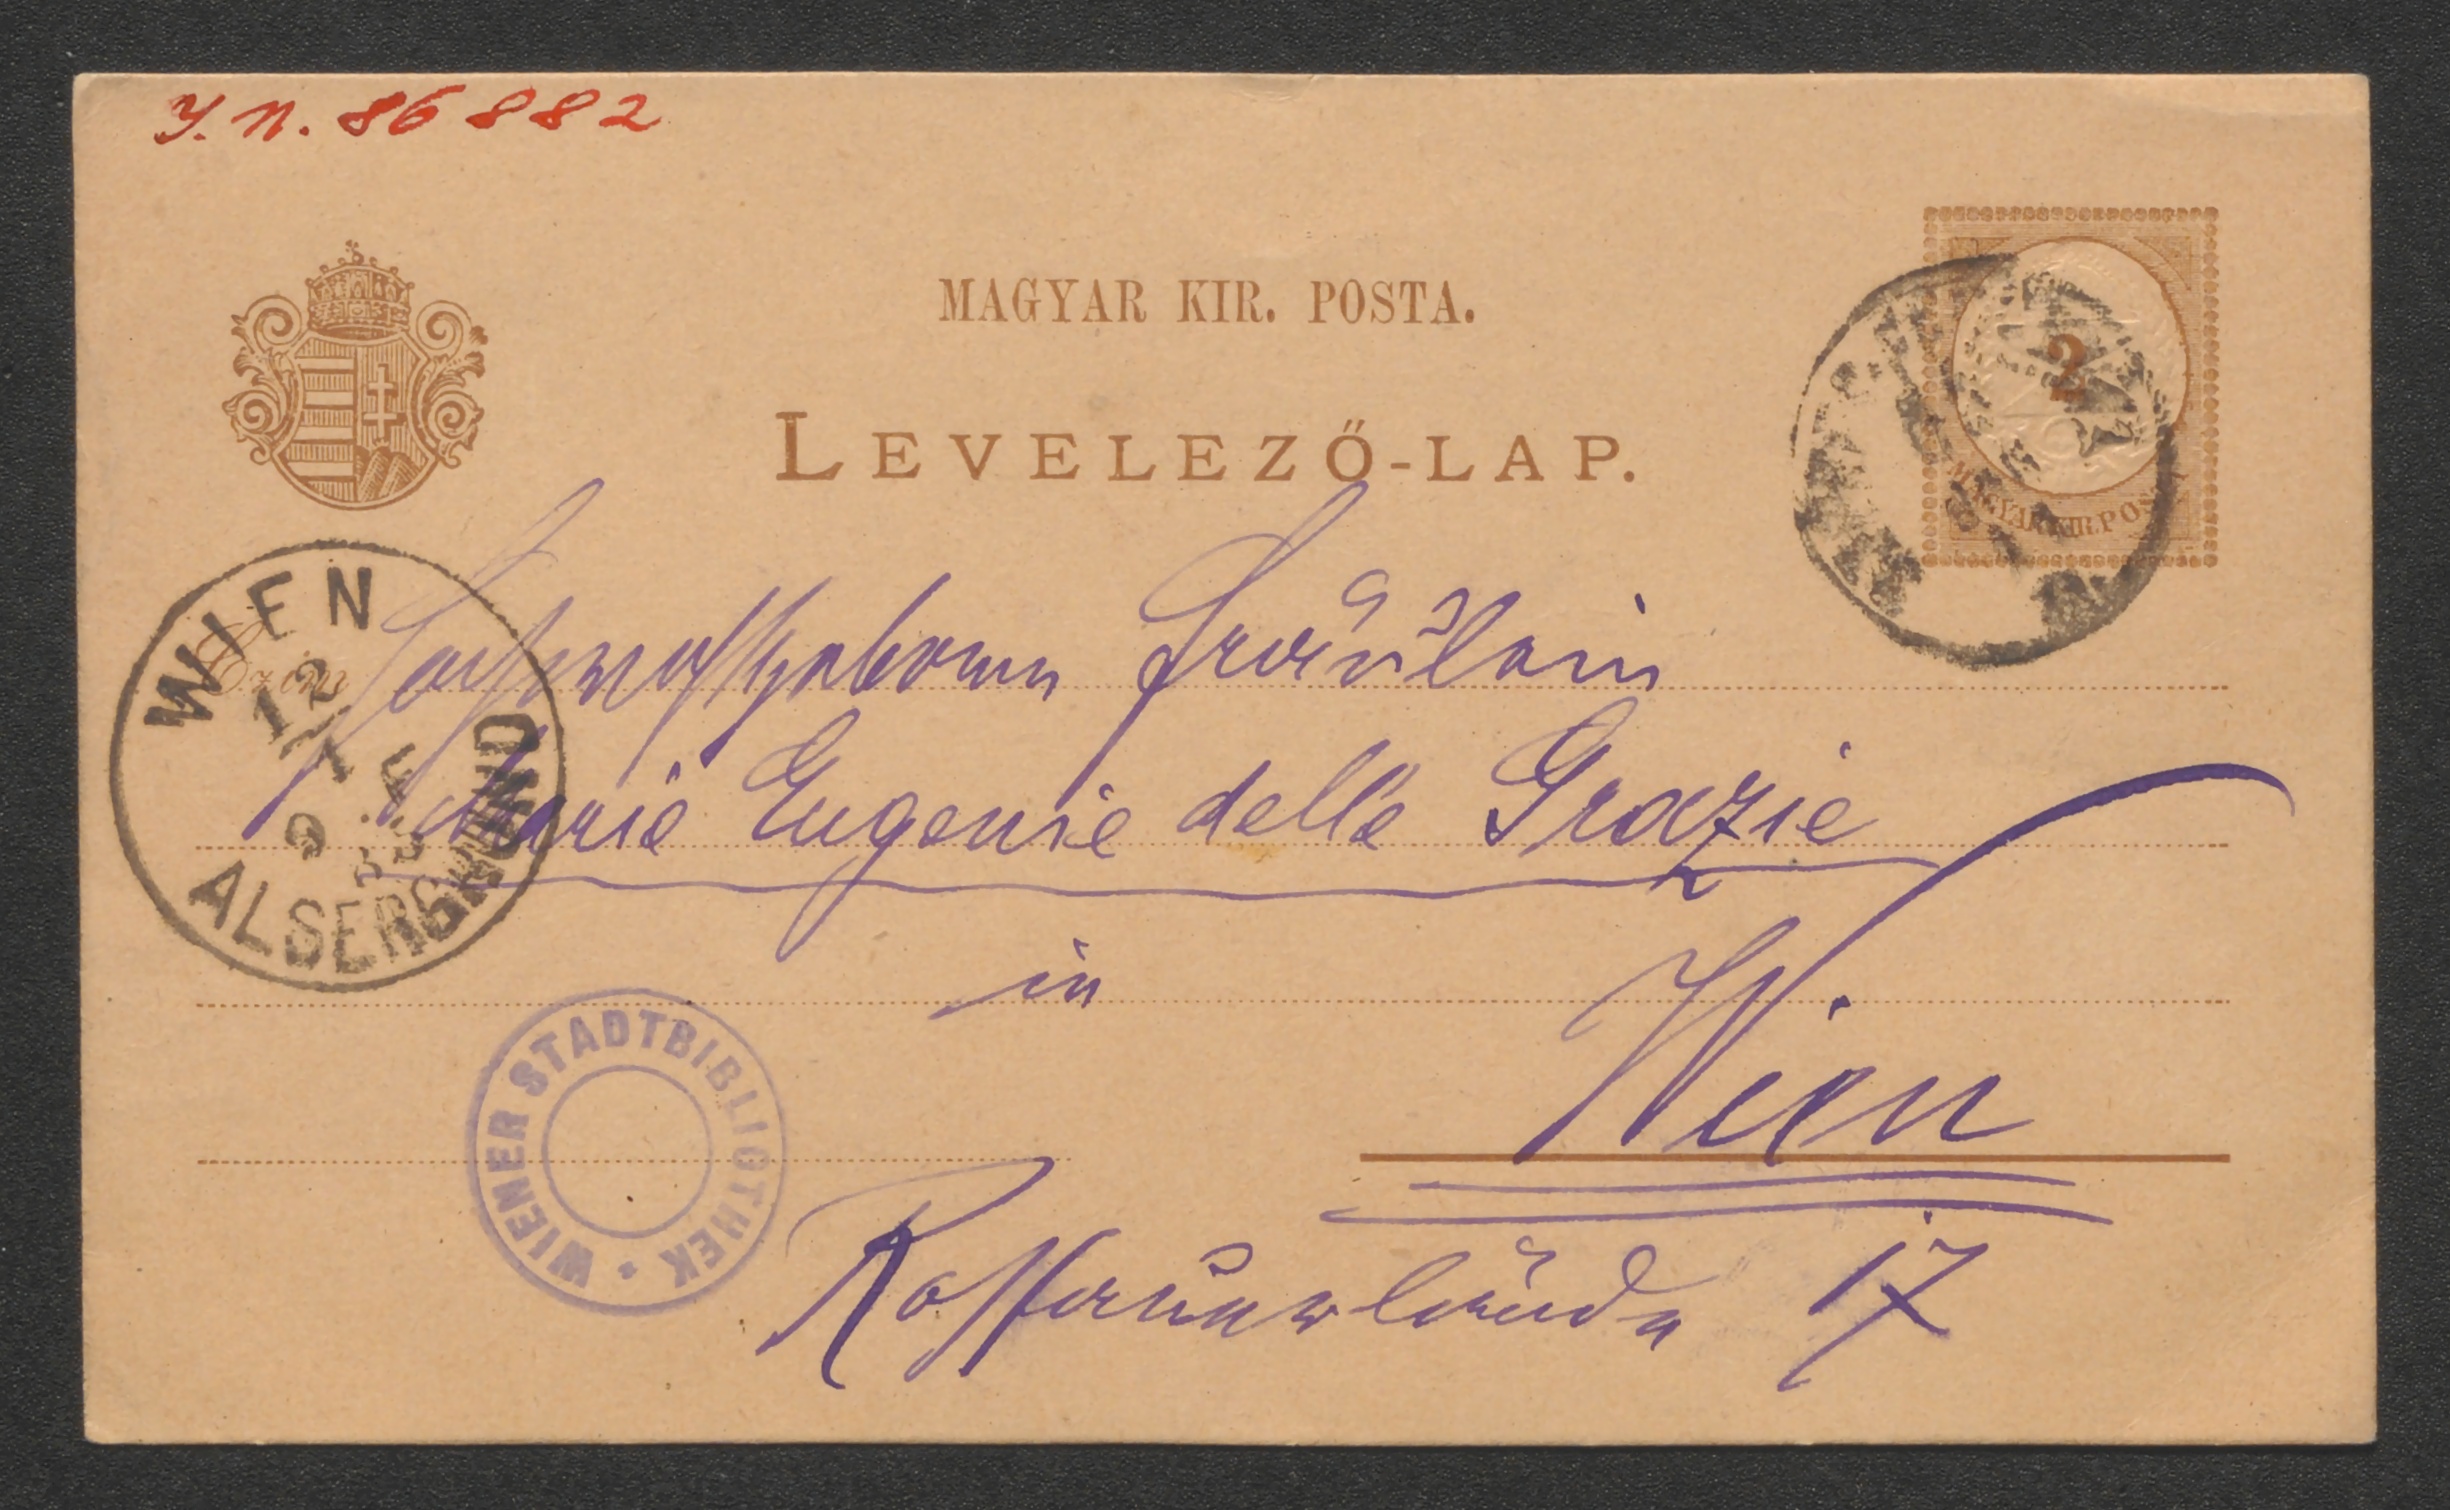 J. N. 86882
MAGYAR KIR. POSTA.
LEVELEZŐ-LAP.
2
MAGYAR KIR. POSTA
WIEN
12
1
ALSERGRUND
Czim
Hochwohlgeboren Fräulein
Marie Eugenie delle Grazie
in
Wien
WIENER STADTBIBLIOTHEK
Roßauerlände 17